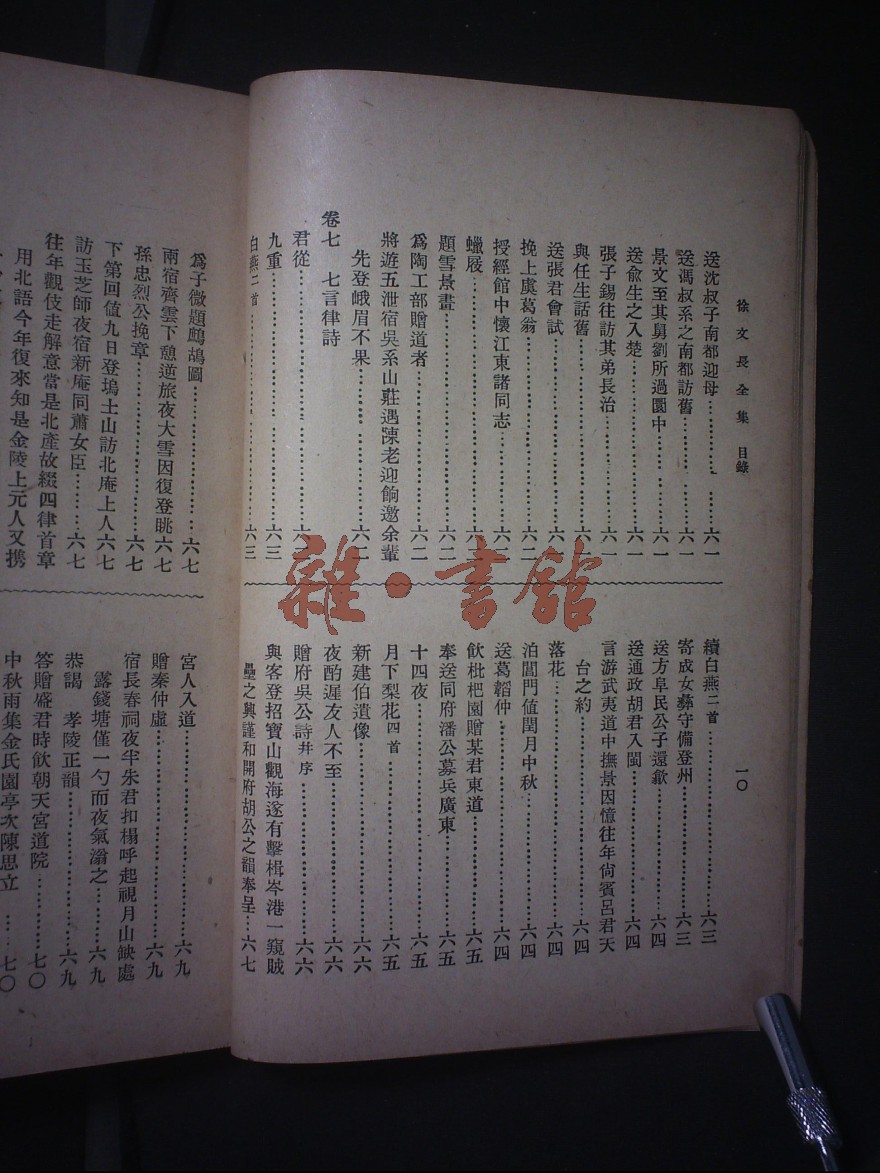 徐文長全集 目錄
一〇
送沈叔子南都迎母……六一
送馮叔系之南都訪舊……六一
景文至其舅劉所過圜中……六一
送俞生之入楚……六一
張子錫往訪其弟長治……六一
與任生話舊……六一
送張君會試……六二
挽上虞葛翁……六二
授經館中懷江東諸同志……六二
蠟屐……六二
題雪景畫……六二
爲陶工部贈道者……六二
將遊五泄宿吳系山莊遇陳老迎餉邀余輩
先登峨眉不果……六二
卷七 七言律詩
君從……六三
九重……六三
白燕二首……六三
續白燕二首……六三
寄成女彝守備登州……六三
送方阜民公子還歙……六四
送通政胡君入閩……六四
言游武夷道中撫景因憶往年尙賓呂君天
台之約……六四
落花……六四
泊閶門値閏月中秋……六四
送葛韜仲……六四
飲枇杷園贈某君東道……六五
奉送同府潘公募兵廣東……六五
十四夜……六五
月下梨花四首……六五
新建伯遺像……六六
夜酌遲友人不至……六六
贈府吳公詩幷序……六六
與客登招寶山觀海遂有擊楫岑港一窺賊
壘之興謹和開府胡公之韻奉呈……六七
爲子微題鷓鴣圖……六七
兩宿齊雲下憩逆旅夜大雪因復登眺……六七
孫忠烈公挽章……六七
下第回値九日登塢土山訪北庵上人六七
訪玉芝師夜宿新庵同蕭女臣……六七
往年觀伎走解意當是北產故綴四律首章
用北語今年復來知是金陵上元人又携
宮人入道……六九
贈秦仲虛……六九
宿長春祠夜半朱君扣榻呼起視月山缺處
露錢塘僅一勺而夜氣滃之……六九
恭謁 孝陵正韻……六九
答贈盛君時飮朝天宮道院……七〇
中秋雨集金氏園亭次陳思立……七〇
雜·書館